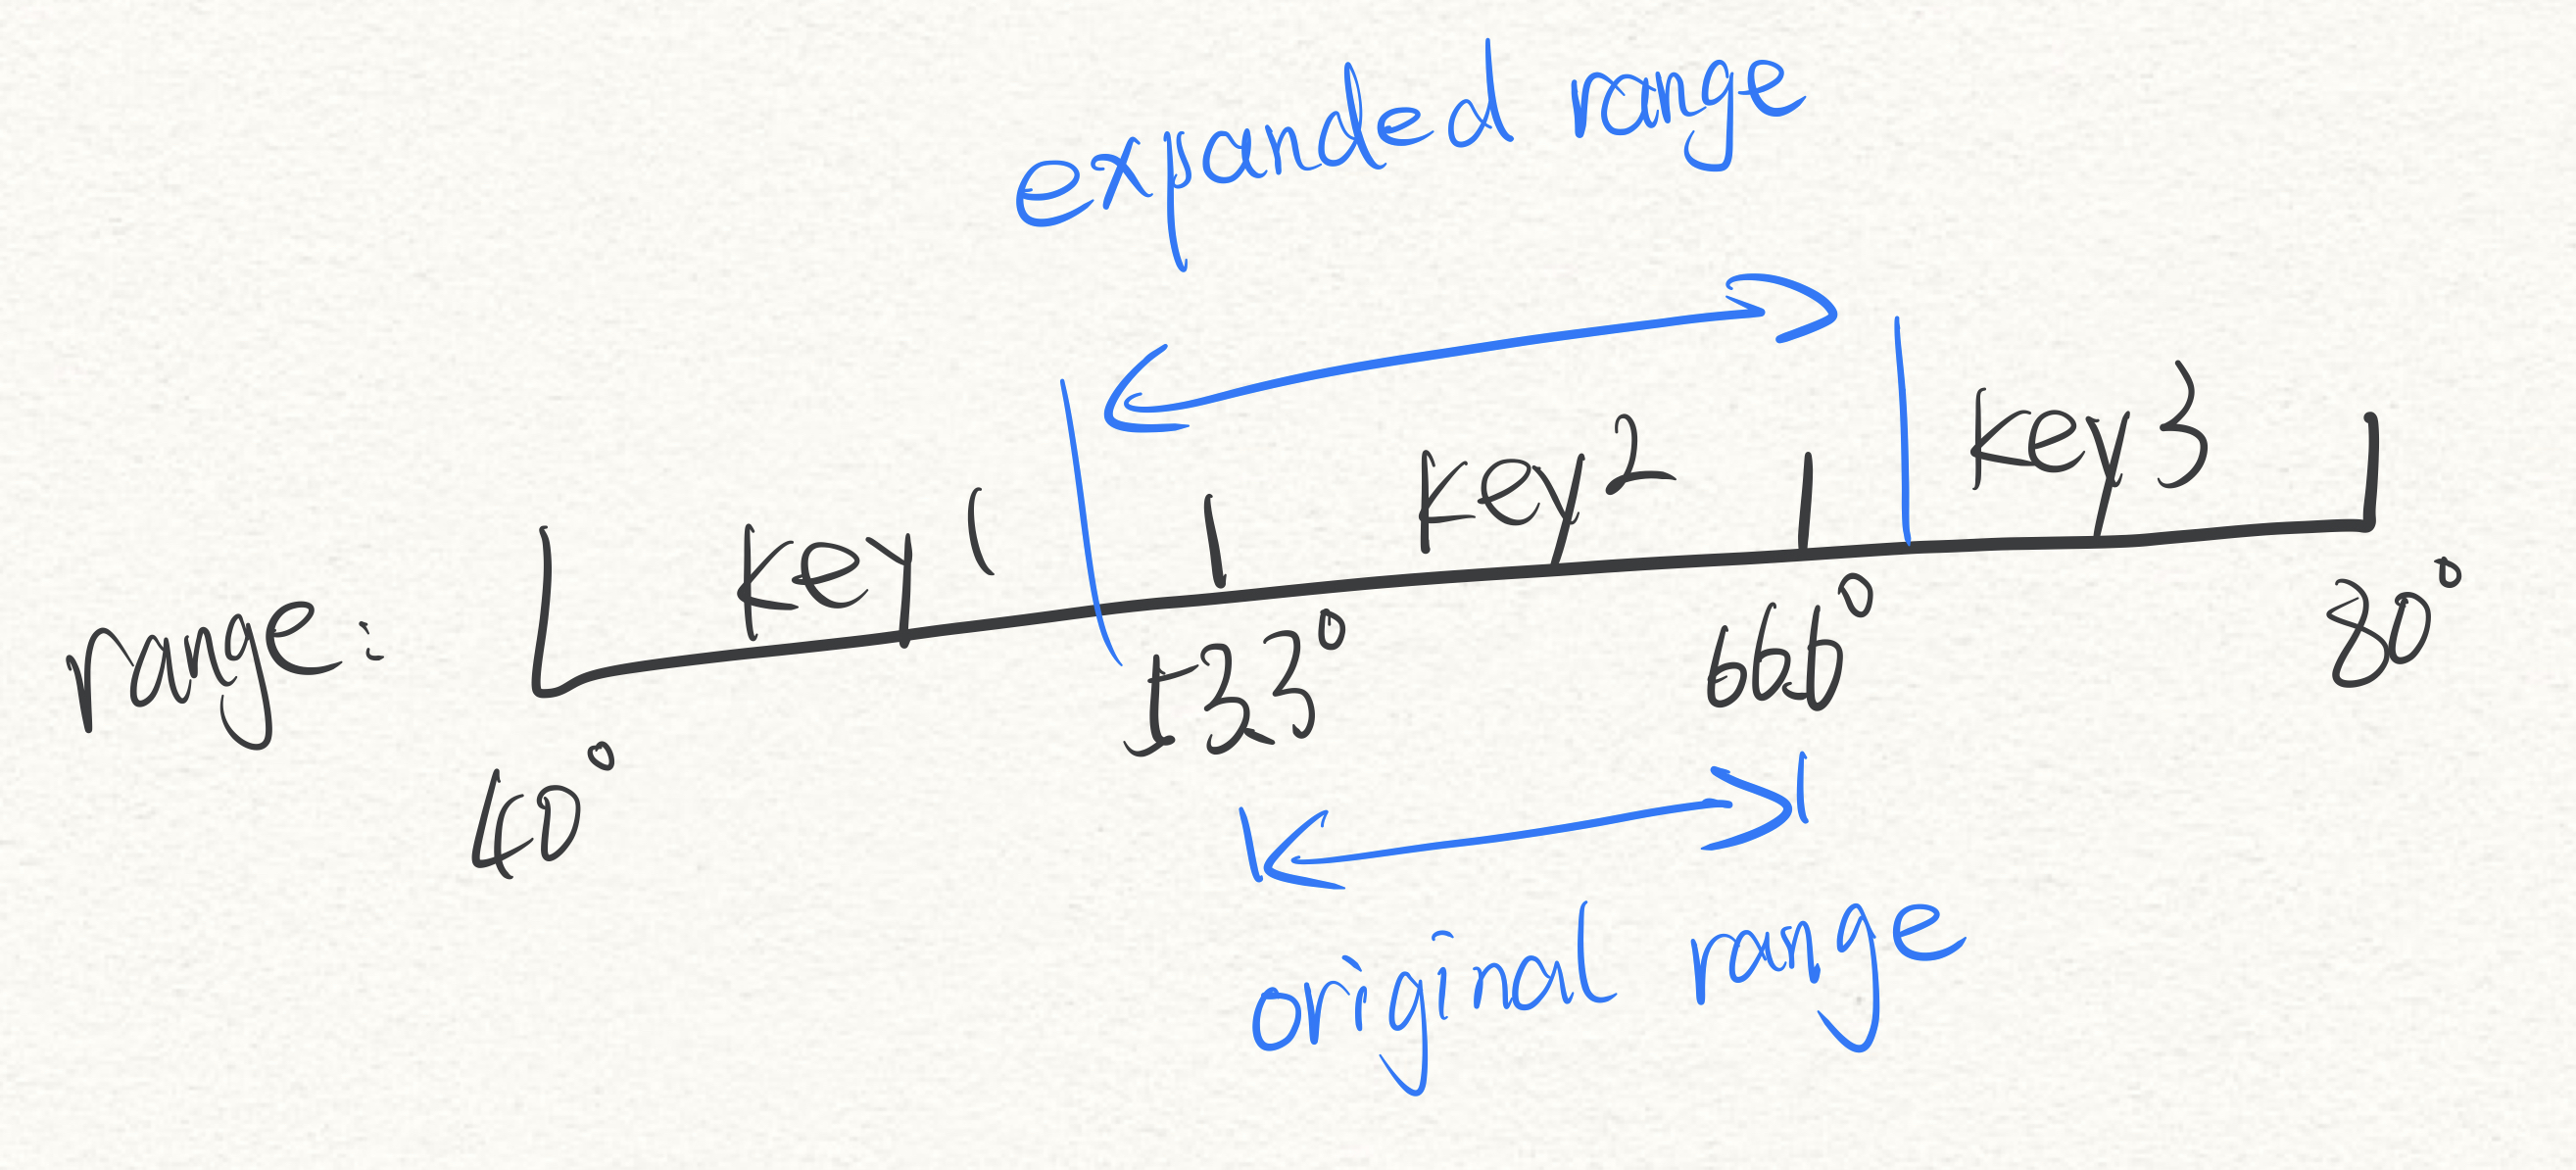 expanded range
key1 key2 key3
range:
40° 533° 666° 80°
original range